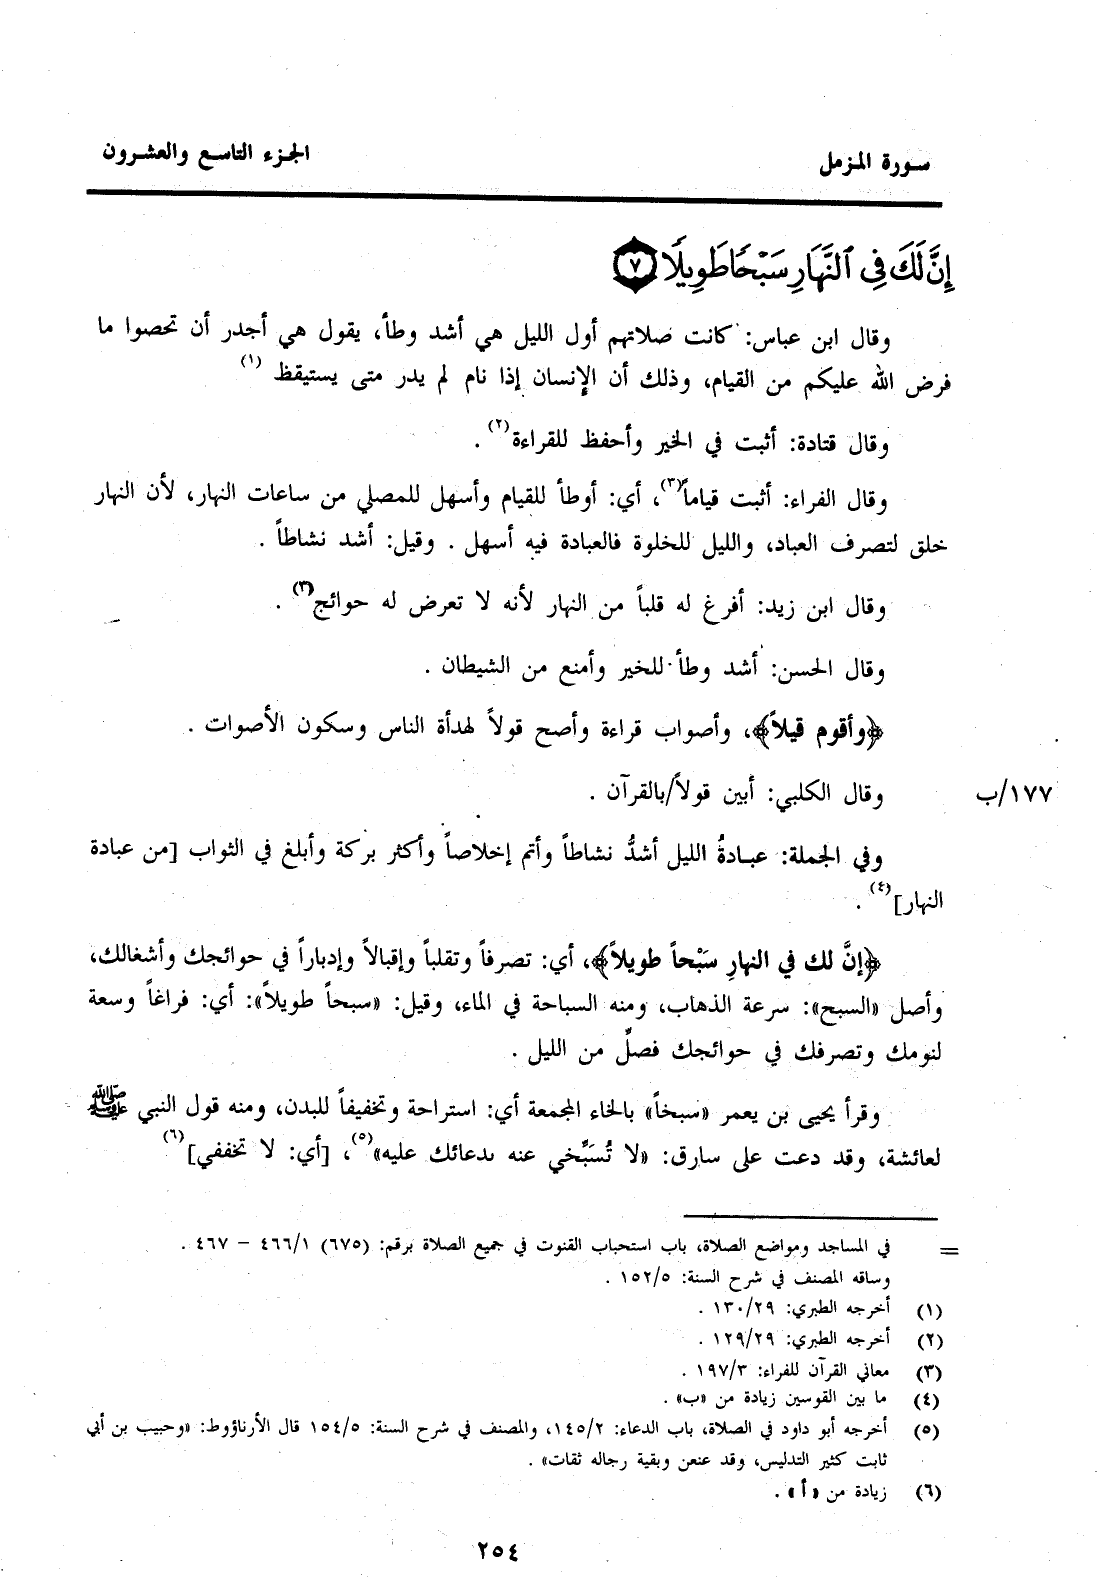 سورة المزمل
الجزء التاسع والعشرون
إِنَّ لَكَ فِى ٱلنَّهَارِ سَبْحًا طَوِيلًا ٧
وقال ابن عباس: كانت صلاتهم أول الليل هي أشد وطأ، يقول هي أجدر أن تحصوا ما
فرض الله عليكم من القيام، وذلك أن الإنسان إذا نام لم يدر متى يستيقظ (١)
وقال قتادة: أثبت في الخير وأحفظ للقراءة(٢) .
وقال الفراء: أثبت قياماً(٣)، أي: أوطأ للقيام وأسهل للمصلي من ساعات النهار، لأن النهار
خلق لتصرف العباد، والليل للخلوة فالعبادة فيه أسهل . وقيل: أشد نشاطاً .
وقال ابن زيد: أفرغ له قلباً من النهار لأنه لا تعرض له حوائج(٣) .
وقال الحسن: أشد وطأ للخير وأمنع من الشيطان .
﴿وأقوم قيلاً﴾، وأصواب قراءة وأصح قولاً لهدأة الناس وسكون الأصوات .
وقال الكلبي: أبين قولاً/بالقرآن .
١٧٧/ب
وفي الجملة: عبادةُ الليل أشدُّ نشاطاً وأتم إخلاصاً وأكثر بركة وأبلغ في الثواب [من عبادة
النهار](٤) .
﴿إنَّ لك في النهارِ سَبْحاً طويلاً﴾، أي: تصرفاً وتقلباً وإقبالاً وإدباراً في حوائجك وأشغالك،
وأصل «السبح»: سرعة الذهاب، ومنه السباحة في الماء، وقيل: «سبحاً طويلاً»: أي: فراغاً وسعة
لنومك وتصرفك في حوائجك فصلِّ من الليل .
وقرأ يحيى بن يعمر «سبخاً» بالخاء المجمعة أي: استراحة وتخفيفاً للبدن، ومنه قول النبي ﷺ
لعائشة، وقد دعت على سارق: «لا تُسَبِّخي عنه بدعائك عليه»(٥)، [أي: لا تخففي](٦)
= في المساجد ومواضع الصلاة، باب استحباب القنوت في جميع الصلاة برقم: (٦٧٥) ٤٦٦/١ – ٤٦٧ .
وساقه المصنف في شرح السنة: ١٥٢/٥ .
(١) أخرجه الطبري: ١٣٠/٢٩ .
(٢) أخرجه الطبري: ١٢٩/٢٩ .
(٣) معاني القرآن للفراء: ١٩٧/٣ .
(٤) ما بين القوسين زيادة من «ب» .
(٥) أخرجه أبو داود في الصلاة، باب الدعاء: ١٤٥/٢، والمصنف في شرح السنة: ١٥٤/٥ قال الأرناؤوط: «وحبيب بن أبي
ثابت كثير التدليس، وقد عنعن وبقية رجاله ثقات» .
(٦) زيادة من «أ» .
٢٥٤